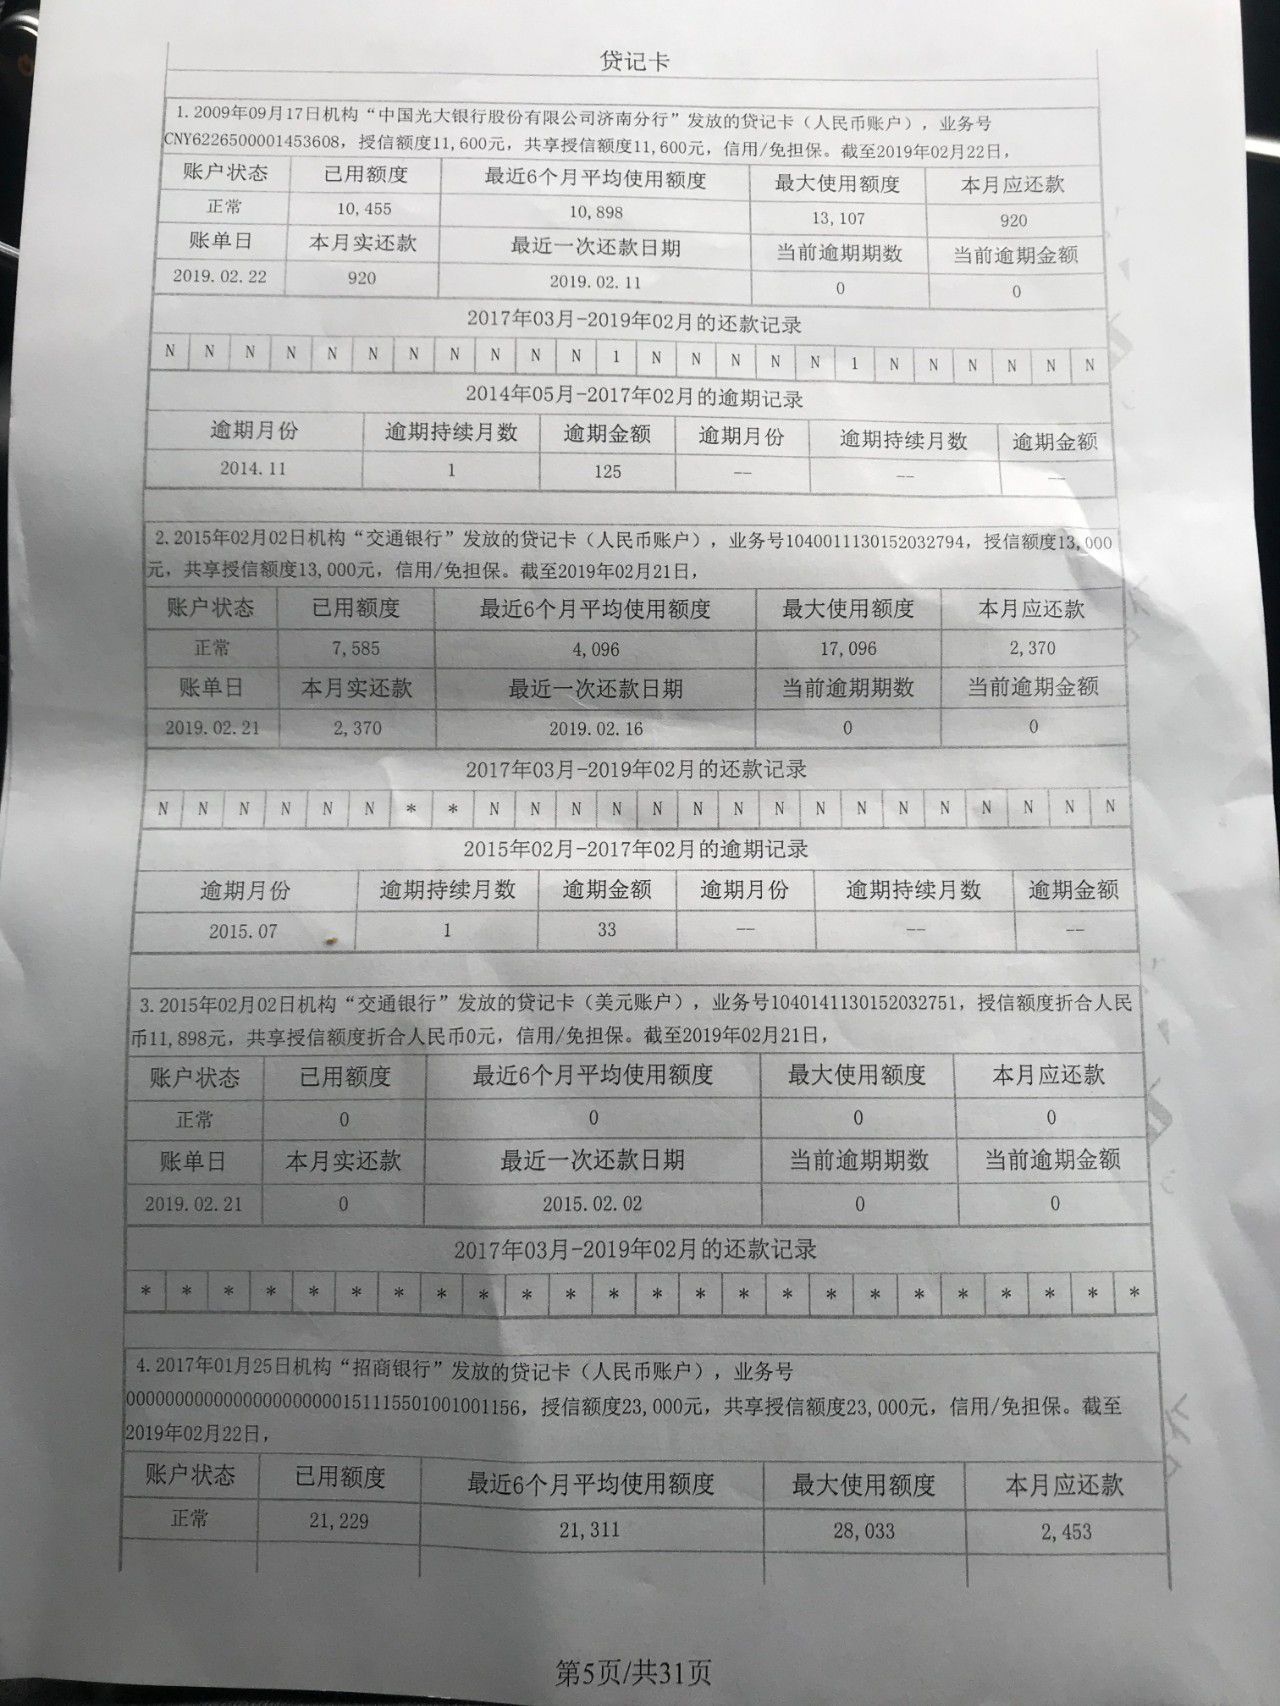 贷记卡
1.2009年09月17日机构“中国光大银行股份有限公司济南分行”发放的贷记卡（人民币账户），业务号
CNY6226500001453608，授信额度11,600元，共享授信额度11,600元，信用/免担保。截至2019年02月22日，
账户状态 已用额度 最近6个月平均使用额度 最大使用额度 本月应还款
正常 10,455 10,898 13,107 920
账单日 本月实还款 最近一次还款日期 当前逾期期数 当前逾期金额
2019.02.22 920 2019.02.11 0 0
2017年03月-2019年02月的还款记录
N N N N N N N N N N N 1 N N N N N 1 N N N N N N
2014年05月-2017年02月的逾期记录
逾期月份 逾期持续月数 逾期金额 逾期月份 逾期持续月数 逾期金额
2014.11 1 125 -- -- --
2.2015年02月02日机构“交通银行”发放的贷记卡（人民币账户），业务号1040011130152032794，授信额度13,000
元，共享授信额度13,000元，信用/免担保。截至2019年02月21日，
账户状态 已用额度 最近6个月平均使用额度 最大使用额度 本月应还款
正常 7,585 4,096 17,096 2,370
账单日 本月实还款 最近一次还款日期 当前逾期期数 当前逾期金额
2019.02.21 2,370 2019.02.16 0 0
2017年03月-2019年02月的还款记录
N N N N N N * * N N N N N N N N N N N N N N N N
2015年02月-2017年02月的逾期记录
逾期月份 逾期持续月数 逾期金额 逾期月份 逾期持续月数 逾期金额
2015.07 1 33 -- -- --
3.2015年02月02日机构“交通银行”发放的贷记卡（美元账户），业务号1040141130152032751，授信额度折合人民
币11,898元，共享授信额度折合人民币0元，信用/免担保。截至2019年02月21日，
账户状态 已用额度 最近6个月平均使用额度 最大使用额度 本月应还款
正常 0 0 0 0
账单日 本月实还款 最近一次还款日期 当前逾期期数 当前逾期金额
2019.02.21 0 2015.02.02 0 0
2017年03月-2019年02月的还款记录
* * * * * * * * * * * * * * * * * * * * * * * *
4.2017年01月25日机构“招商银行”发放的贷记卡（人民币账户），业务号
0000000000000000000000015111550100100​1156，授信额度23,000元，共享授信额度23,000元，信用/免担保。截至
2019年02月22日，
账户状态 已用额度 最近6个月平均使用额度 最大使用额度 本月应还款
正常 21,229 21,311 28,033 2,453
第5页/共31页